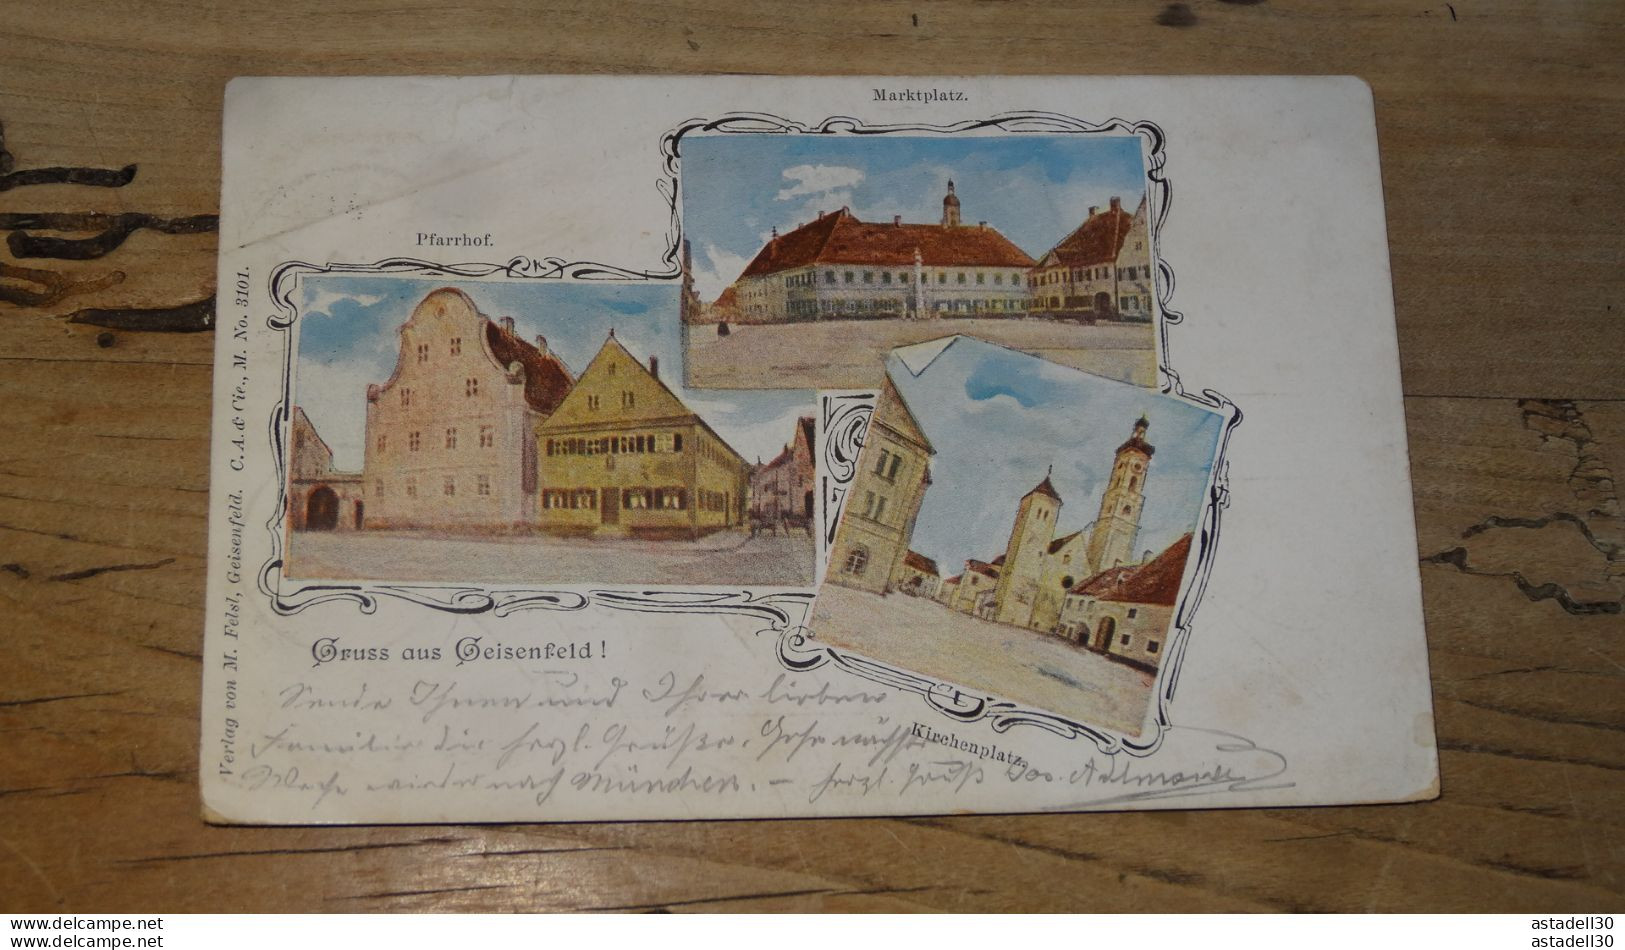 Marktplatz.
Pfarrhof.
Verlag von M. Felsl, Geisenfeld. C. A. & Cie., M. No. 3101.
Gruss aus Geisenfeld!
Kirchenplatz.
Sende Ihnen und Ihrer lieben
Familie die herzl. Grüße. Gehe nächste
Woche wieder nach München. – herzl. Gruß Jos.
www.delcampe.net
astadell30
www.delcampe.net
astadell30